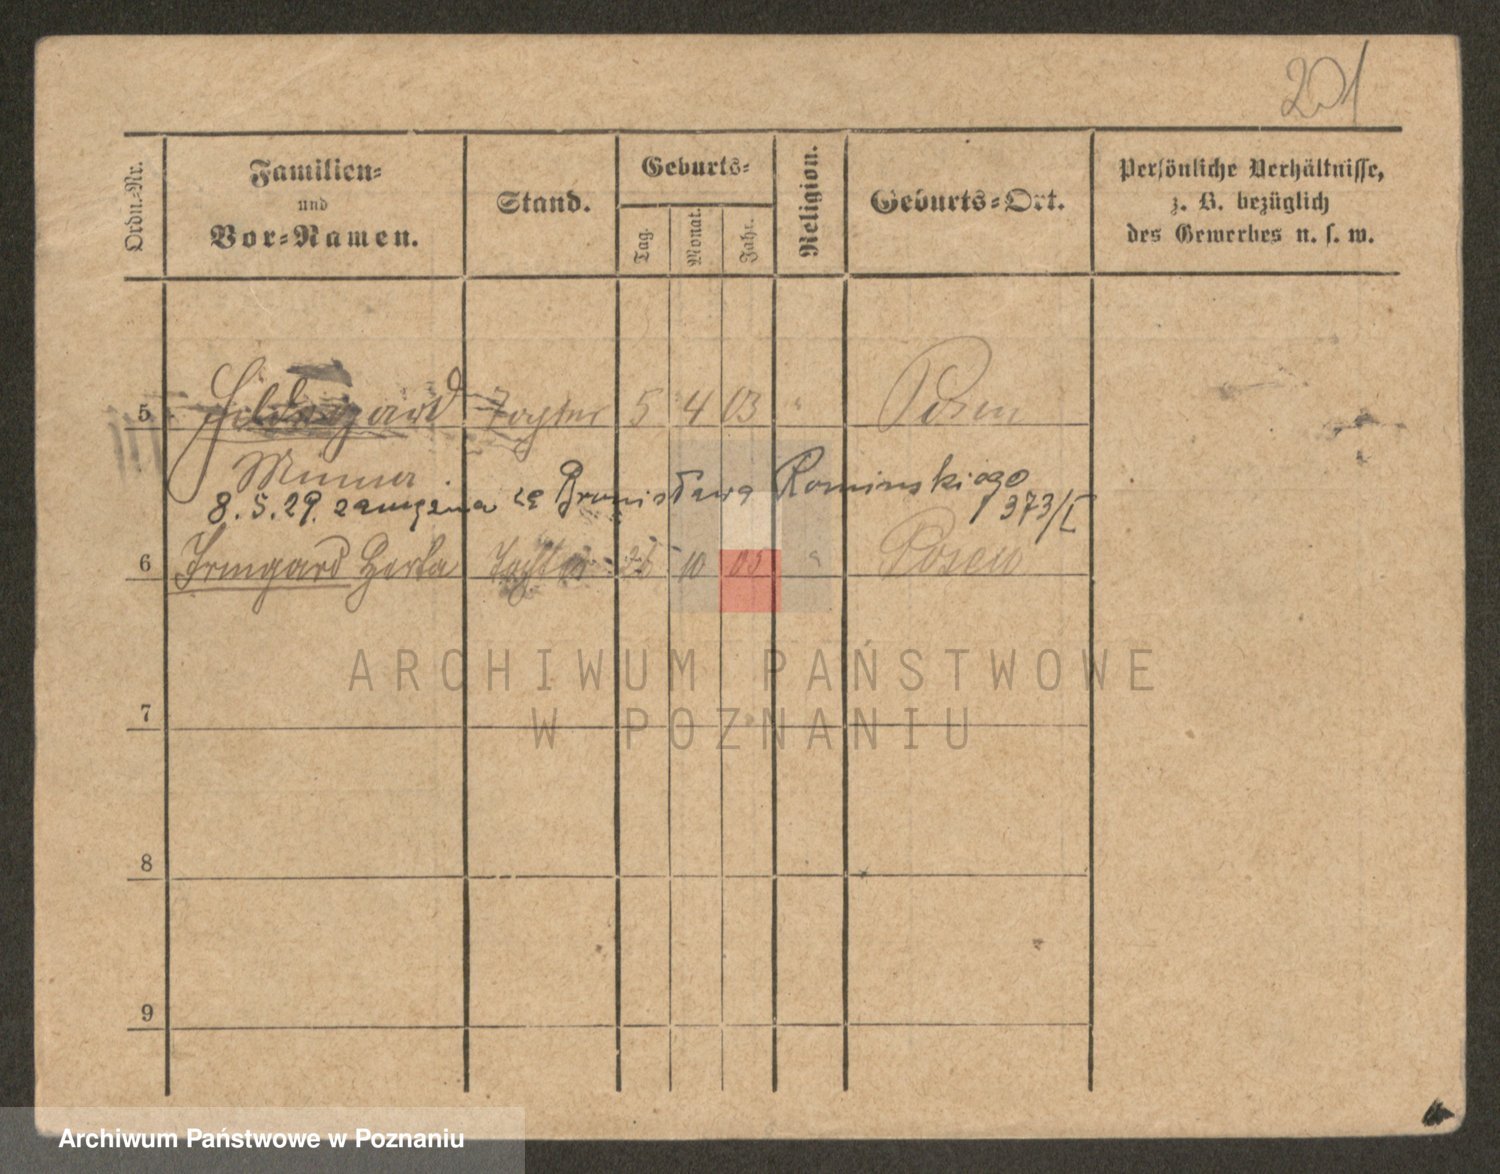 201
Ordn.-Nr.
Familien-
und
Vor-Namen.
Stand.
Geburts-
Tag.
Monat.
Jahr.
Religion.
Geburts-Ort.
Persönliche Verhältnisse,
z. B. bezüglich
des Gewerbes u. s. w.
5 Hildegard Tochter 5 4 03 " Posen
Minna
8.5.29. zamężna za Bronisława Rominskiego
373/I
6 Irmgard Herta Tochter 10 05 " Posen
ARCHIWUM PAŃSTWOWE
W POZNANIU
7
8
9
Archiwum Państwowe w Poznaniu